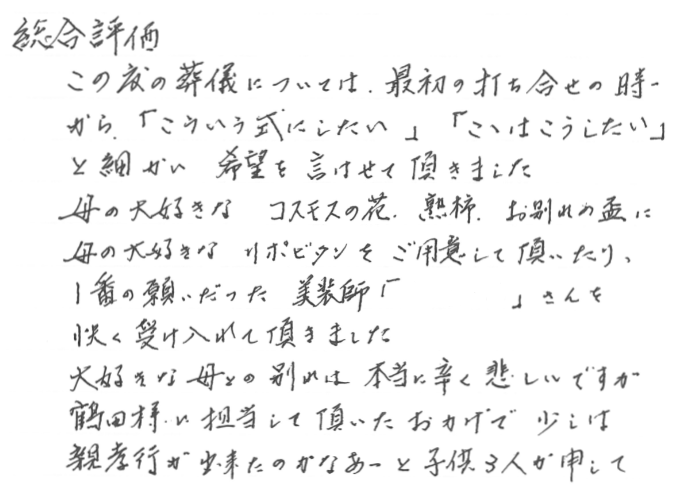 総合評価
この度の葬儀については、最初の打ち合せの時
から、「こういう式にしたい」「ここはこうしたい」
と細かい 希望を言わせて頂きました
母の大好きな コスモスの花、熟柿、お別れの盃に
母の大好きな リポビタンをご用意して頂いたり、
1番の願いだった 美装師「 」さんを
快く受け入れて頂きました
大好きな母との別れは 本当に辛く悲しいですが
鶴田様に担当して頂いたおかげで 少しは
親孝行が出来たのかなあーと子供3人が申して